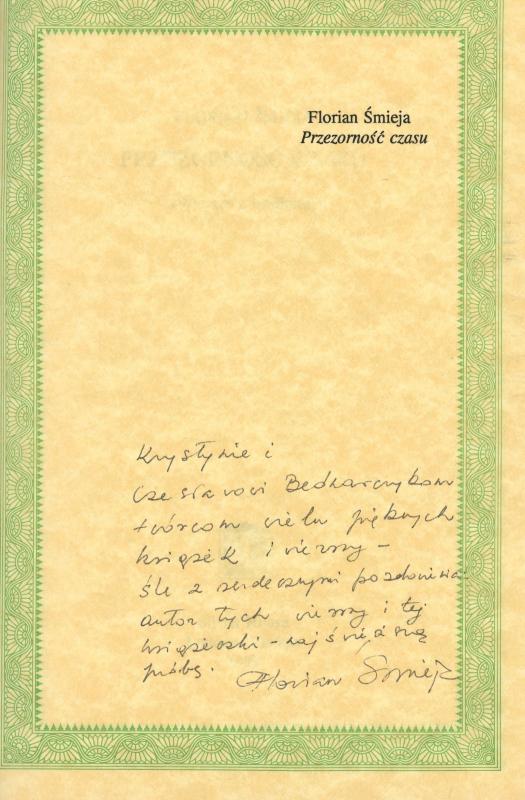 Florian Śmieja
Przezorność czasu
Krystynie i
Czesławowi Bednarczykom
twórcom wielu pięknych
książek i wierszy –
śle z serdecznymi pozdrowieniami
autor tych wierszy i tej
książeczki – najświeższą
próbę.
Florian Śmieja